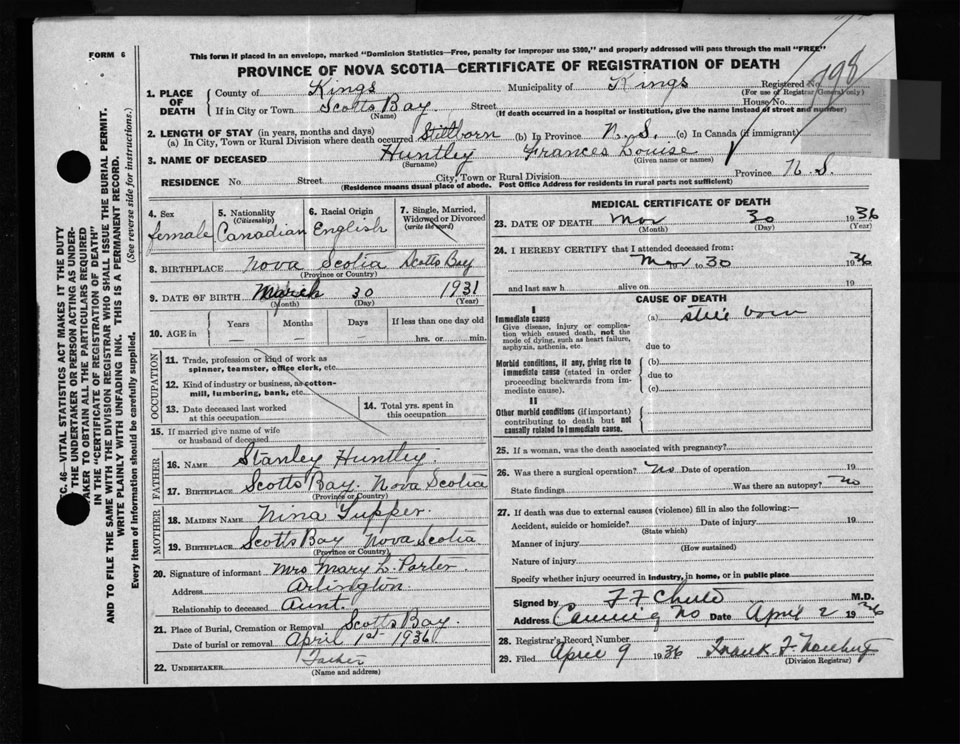 FORM 6
This form if placed in an envelope, marked "Dominion Statistics—Free, penalty for improper use $300," and properly addressed will pass through the mail "FREE"
PROVINCE OF NOVA SCOTIA—CERTIFICATE OF REGISTRATION OF DEATH
1. PLACE OF DEATH County of Kings Municipality of Kings Registered No. 798
(For use of Registrar General only)
If in City or Town Scotts Bay. Street House No.
(Name) (If death occurred in a hospital or institution, give the name instead of street and number)
2. LENGTH OF STAY (in years, months and days)
(a) In City, Town or Rural Division where death occurred Stillborn (b) In Province N.S. (c) In Canada (if immigrant)
3. NAME OF DECEASED Huntley Frances Louise
(Surname) (Given name or names)
RESIDENCE No. Street City, Town or Rural Division Province N.S.
(Residence means usual place of abode. Post Office Address for residents in rural parts not sufficient)
4. Sex female
5. Nationality (Citizenship) Canadian
6. Racial Origin English
7. Single, Married, Widowed or Divorced (write the word)
8. BIRTHPLACE Nova Scotia Scotts Bay
(Province or Country)
9. DATE OF BIRTH March 30 1931
(Month) (Day) (Year)
10. AGE in Years Months Days If less than one day old
— — hrs. or min.
OCCUPATION
11. Trade, profession or kind of work as spinner, teamster, office clerk, etc.
12. Kind of industry or business, as cotton-mill, lumbering, bank, etc.
13. Date deceased last worked at this occupation
14. Total yrs. spent in this occupation
15. If married give name of wife or husband of deceased
FATHER
16. NAME Stanley Huntley.
17. BIRTHPLACE Scotts Bay. Nova Scotia
(Province or Country)
MOTHER
18. MAIDEN NAME Nina Tupper.
19. BIRTHPLACE Scotts Bay Nova Scotia
(Province or Country)
20. Signature of informant Mrs Mary L. Porter.
Address Arlington
Relationship to deceased Aunt.
21. Place of Burial, Cremation or Removal Scotts Bay.
Date of burial or removal April 1st 1936
22. UNDERTAKER Father
(Name and address)
MEDICAL CERTIFICATE OF DEATH
23. DATE OF DEATH Mar 30 1936
(Month) (Day) (Year)
24. I HEREBY CERTIFY that I attended deceased from:
Mar 30 1936
and last saw h alive on 19
CAUSE OF DEATH
I
Immediate cause (a) still born
Give disease, injury or complication which caused death, not the mode of dying, such as heart failure, asphyxia, asthenia, etc.
due to
Morbid conditions, if any, giving rise to immediate cause (stated in order proceeding backwards from immediate cause).
(b)
due to
(c)
II
Other morbid conditions (if important) contributing to death but not causally related to immediate cause.
25. If a woman, was the death associated with pregnancy?
26. Was there a surgical operation? No Date of operation 19
State findings Was there an autopsy? no
27. If death was due to external causes (violence) fill in also the following:—
Accident, suicide or homicide? Date of injury 19
(State which)
Manner of injury
(How sustained)
Nature of injury
Specify whether injury occurred in industry, in home, or in public place
Signed by M.D.
Address Canning Date April 2 1936
28. Registrar's Record Number
29. Filed April 9 1936 Frank F.
(Division Registrar)
C. 46—VITAL STATISTICS ACT MAKES IT THE DUTY
THE UNDERTAKER OR PERSON ACTING AS UNDER-
TAKER TO OBTAIN ALL THE PARTICULARS REQUIRED
IN THE "CERTIFICATE OF REGISTRATION OF DEATH"
AND TO FILE THE SAME WITH THE DIVISION REGISTRAR WHO SHALL ISSUE THE BURIAL PERMIT.
WRITE PLAINLY WITH UNFADING INK. THIS IS A PERMANENT RECORD.
Every item of information should be carefully supplied. (See reverse side for instructions.)